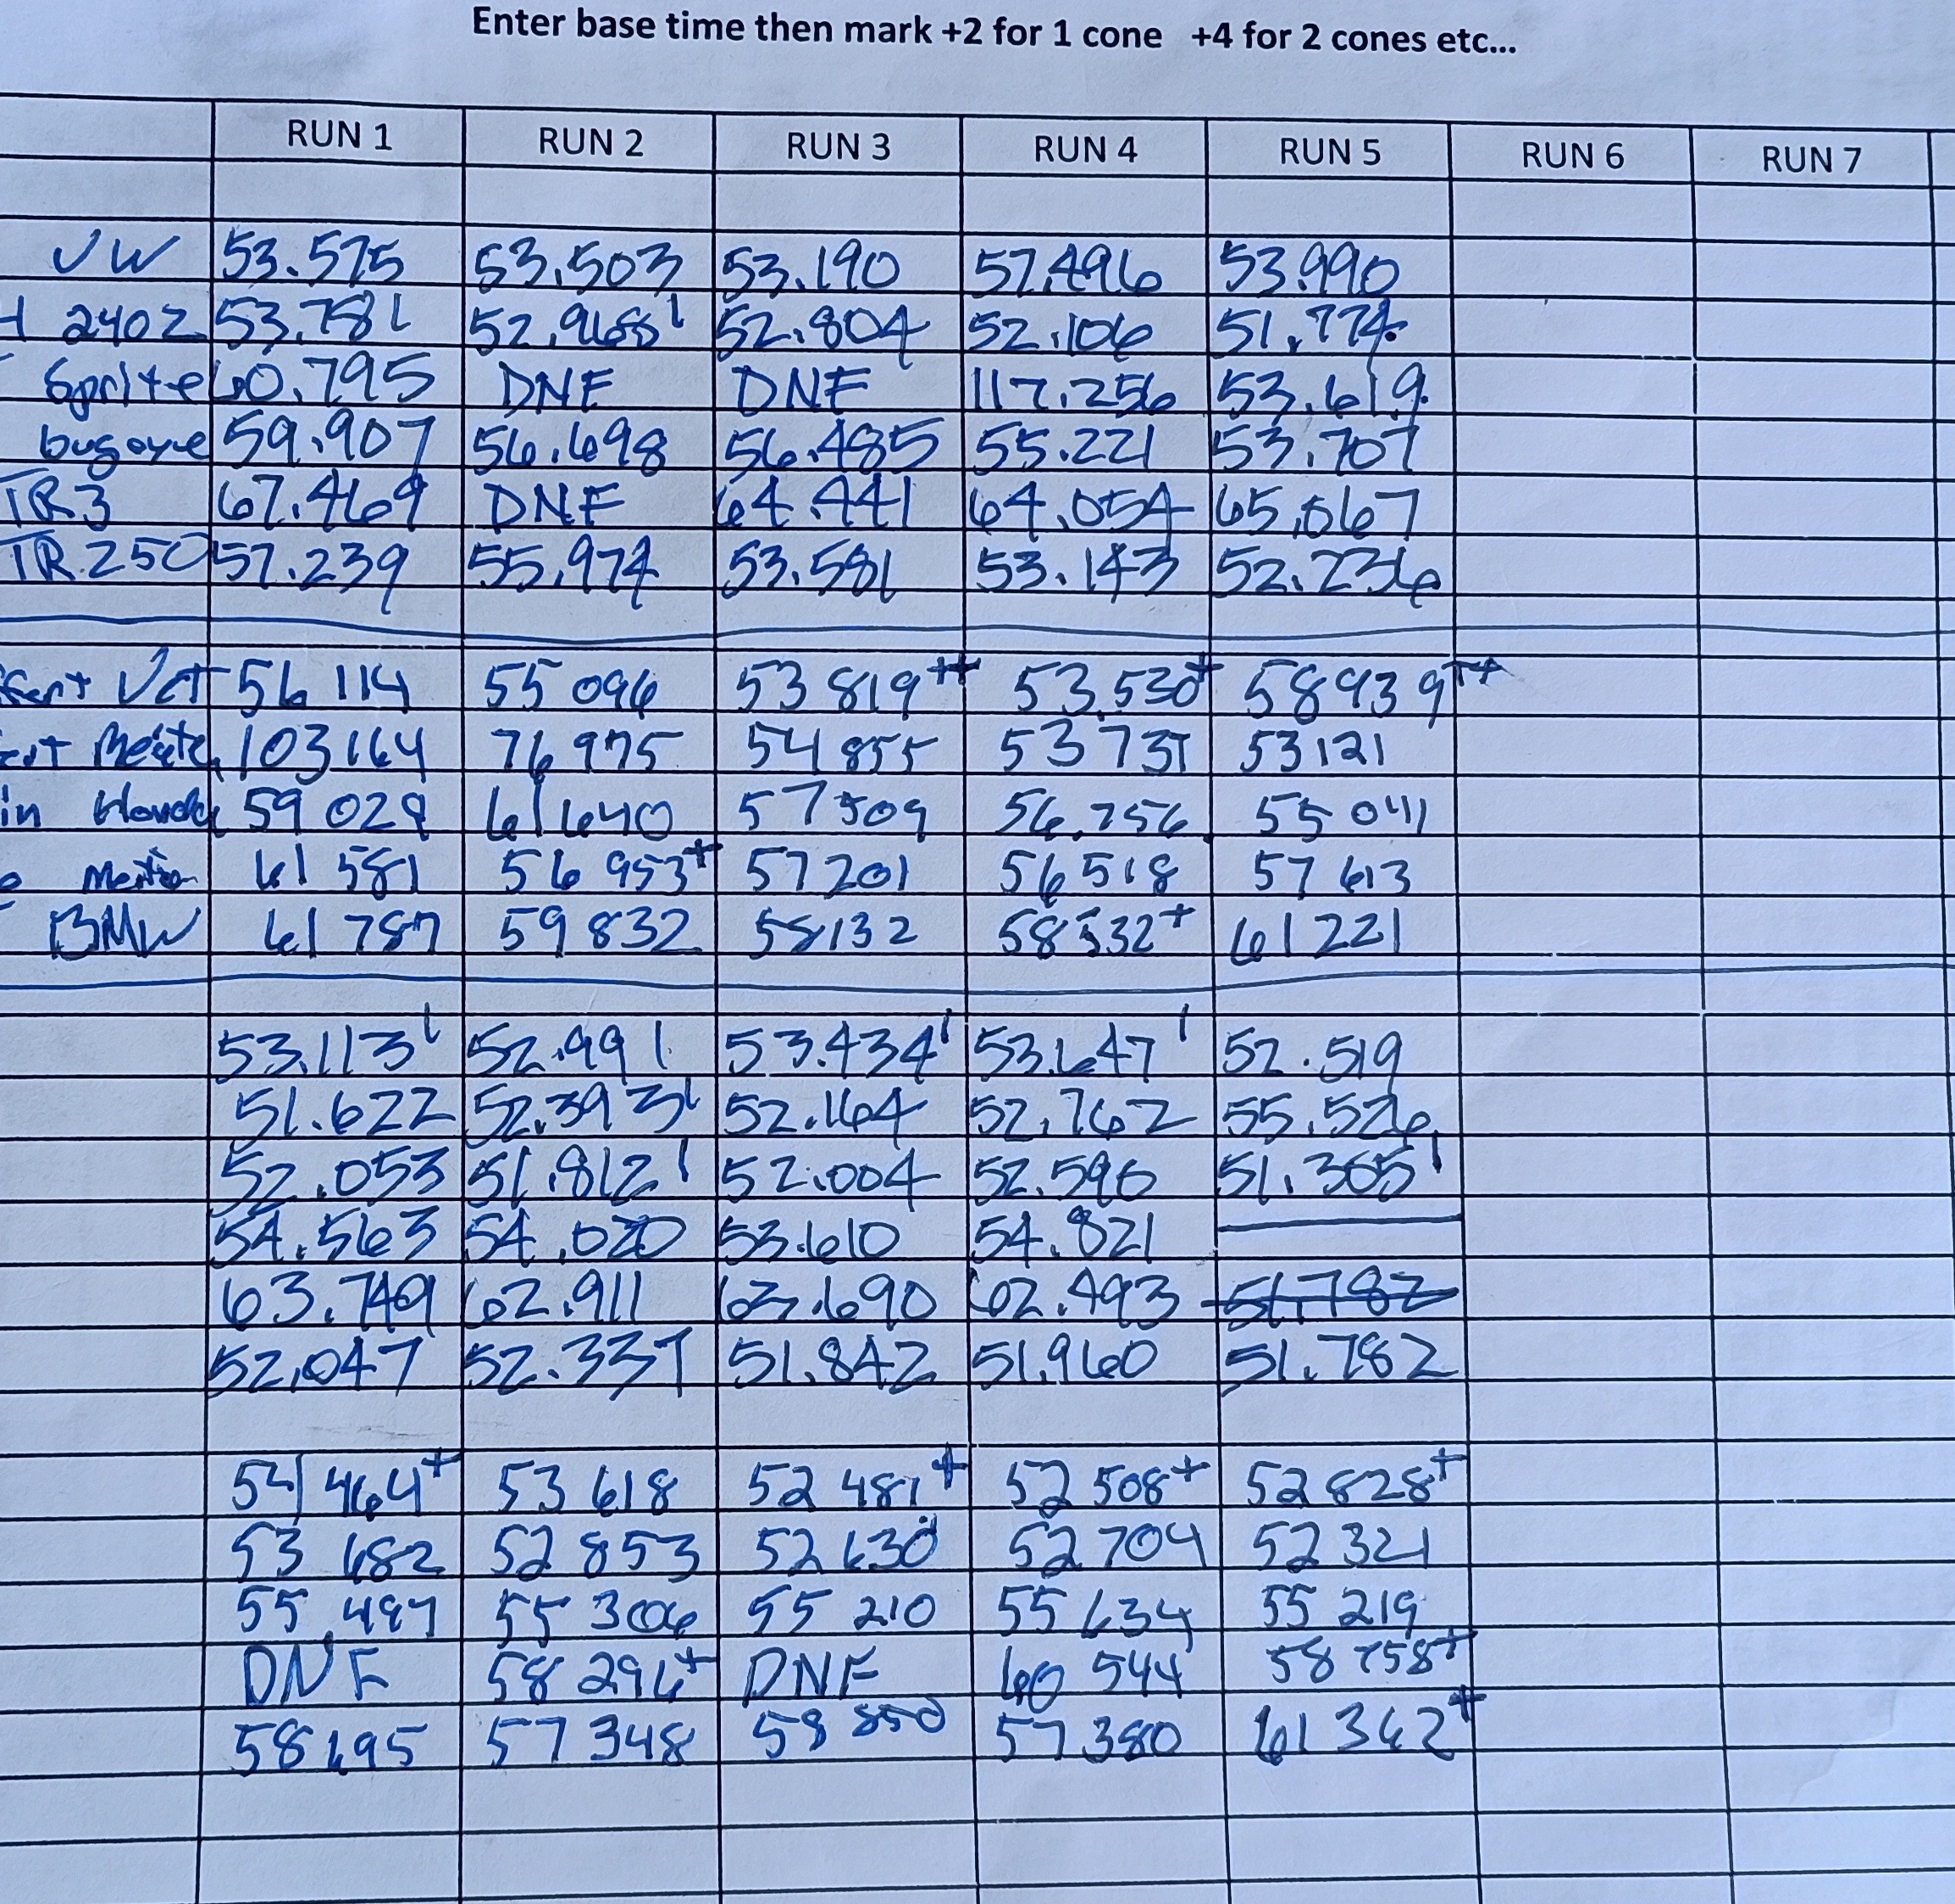 Enter base time then mark +2 for 1 cone +4 for 2 cones etc...
RUN 1 RUN 2 RUN 3 RUN 4 RUN 5 RUN 6 RUN 7
VW 53.575 53.503 53.190 57.496 53.990
240Z 53.781 52.968 1 52.804 52.106 51.774
Sprite 60.795 DNF DNF 117.256 53.619
bugeye 59.907 56.698 56.485 55.221 53.707
TR3 67.469 DNF 64.441 64.054 65.067
TR250 57.239 55.974 53.581 53.143 52.236
56 114 55 096 53 819++ 53.530+ 58 939++
103 164 76 975 54 855 53 737 53 121
in 59 029 61 640 57 509 56.256 55 041
61 581 56 953+ 57 201 56 518 57 613
BMW 61 787 59 832 58 132 58 532+ 61 221
53.113 1 52.991 53.434 1 53.647 1 52.519
51.622 52.393 1 52.164 52.762 55.526
52.053 51.812 1 52.004 52.596 51.365 1
54.563 54.020 53.610 54.821
63.749 62.911 63.690 62.493 51.782
52.047 52.337 51.842 51.960 51.782
464+ 53 618 52 481+ 52 508+ 52 828+
53 682 52 853 52 630 52 704 52 321
55 497 55 306 55 210 55 634 55 219
DNF 58 296+ DNF 60 544 58 758+
58 195 57 348 58 850 57 380 61 362+